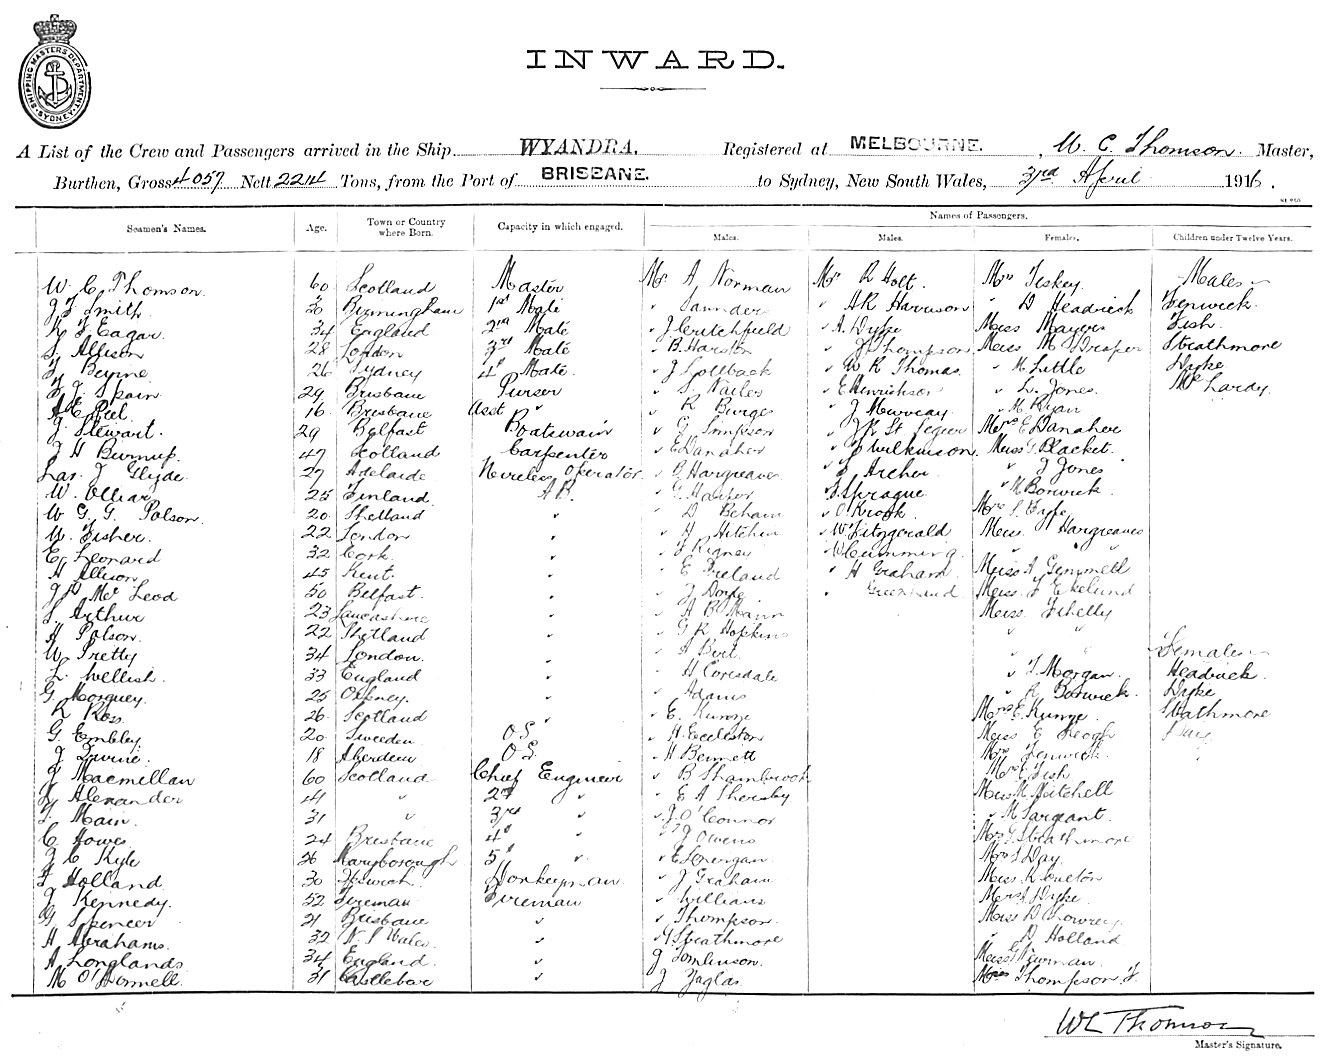 SHIPPING MASTERS DEPARTMENT SYDNEY
INWARD.
A List of the Crew and Passengers arrived in the Ship WYANDRA. Registered at MELBOURNE. , W. C. Thomson. Master,
Burthen, Gross 4057 Nett 2224 Tons, from the Port of BRISBANE. to Sydney, New South Wales, 3rd April 1916.
Names of Passengers.
Seamen's Names. Age. Town or Country where Born. Capacity in which engaged. Males. Males. Females. Children under Twelve Years.
W. C. Thomson. 60 Scotland Master Mr A Norman Mr R Holt. Mrs Fiskey. Males
J F Smith. 30 Birmingham 1st Mate " Saunders " A R Harrison " D Headrick Fenwick.
F Eagar. 34 England 2nd Mate " J. Critchfield " A. Dyke Miss Mayers Fish.
S. Allison 28 London 3rd Mate " B. Harston " J Thompson. Miss M Draper Strathmore
Beirne. 26 Sydney 4" Mate. " J Lollback " W R Thomas. " M. Little Dyke
F J Spain 29 Brisbane Purser " S Nailer " E Hinrichsen " L. Jones. McLardy.
A E Peel. 16 Brisbane Asst " " R Burges " J Murray. " M Ryan
J. Stewart. 29 Belfast Boatswain " G Simpson " J R St Legier Mrs E Danaher
J H Burnup. 47 Scotland Carpenter " E Danaher " Wilkinson. Miss G Blacket.
Jas. J Clyde. 27 Adelaide Wireless Operator " G Hargreaves " Archer " J Jones
W. 25 Finland. A.B. " G Harper " Sprague " M Borwick.
W G. G. Polson. 20 Shetland " " D Beham " O Krook. Mrs S Fyfe
W. Fisher. 22 London " " H Hitchin " W Fitzgerald Miss. Hargreaves
E Leonard 32 Cork. " " F Rigney " W Cumming. " "
A Allison. 45 Kent. " " E Ireland " H Graham. Miss A Gemmell
J P McLeod 50 Belfast. " " J Doyle " Greenhand Miss. J Ekelund
S. Arthur 23 Lancashire " " A B Mann Miss. F Shelly
A Polson. 22 Shetland " " G R Hopkins " "
W Pretty 34 London. " " A Birt. " " Females
L. Wellish. 33 England " " H Corisdale " F Morgan. Headrick.
G Morguey. 25 Orkney. " " Adams " R Borwick. Dyke
R Ross. 26 Scotland " " E. Kunze Mrs E. Kunze. Strathmore
G Embley. 20 Sweeden O.S. " H. Eccleston Miss E Keogh Day
J Irvine. 18 Aberdeen O.S. " H Bennett Mrs Fenwick.
J Macmillan 60 Scotland Chief Engineer " B Shambrook Mrs E Fish
Alexander 44 " 2nd " " E A Thoresby Miss M Mitchell
J. Main. 31 " 3rd " " J. O'Connor " M Sargeant.
C. Howes 24 Brisbane 4" " " J Owens Mrs G Strathmore
J C Kyle 26 Maryborough 5" " " E Lonergan. Mrs S Day.
F Holland. 30 Ipswich. Donkeyman " J Graham Miss R Coulton
J Kennedy. 52 Fireman Fireman " Williams Mrs A Dyke.
G Spencer 21 Brisbane " " Thompson. Miss D Lowrey
A Abrahams. 32 N. S Wales. " " G Strathmore " D Holland
A Longlands 34 England. " J Tomlinson. Miss G Newman.
M O'Donnell. 31 Castlebar " J Zaglas. Miss Thompson. F.
W C Thomson
Master's Signature.